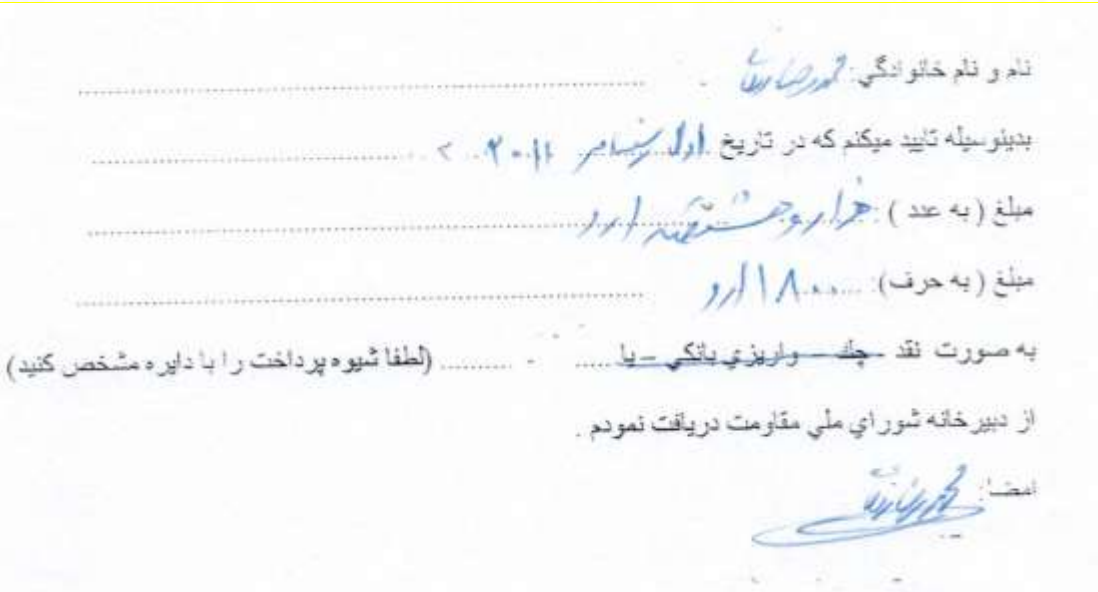 نام و نام خانوادگي: محمدرضا
بدينوسيله تاييد ميكنم كه در تاريخ اول دسامبر ۲۰۱۱
مبلغ ( به عدد ) : هزار و هشتصد ارو
مبلغ ( به حرف): ۱۸۰۰ ارو
به صورت نقد - چك – واريزي بانكي – يا ..... - .......... (لطفا شيوه پرداخت را با دايره مشخص كنيد)
از دبيرخانه شوراي ملي مقاومت دريافت نمودم .
امضا: محمدرضا